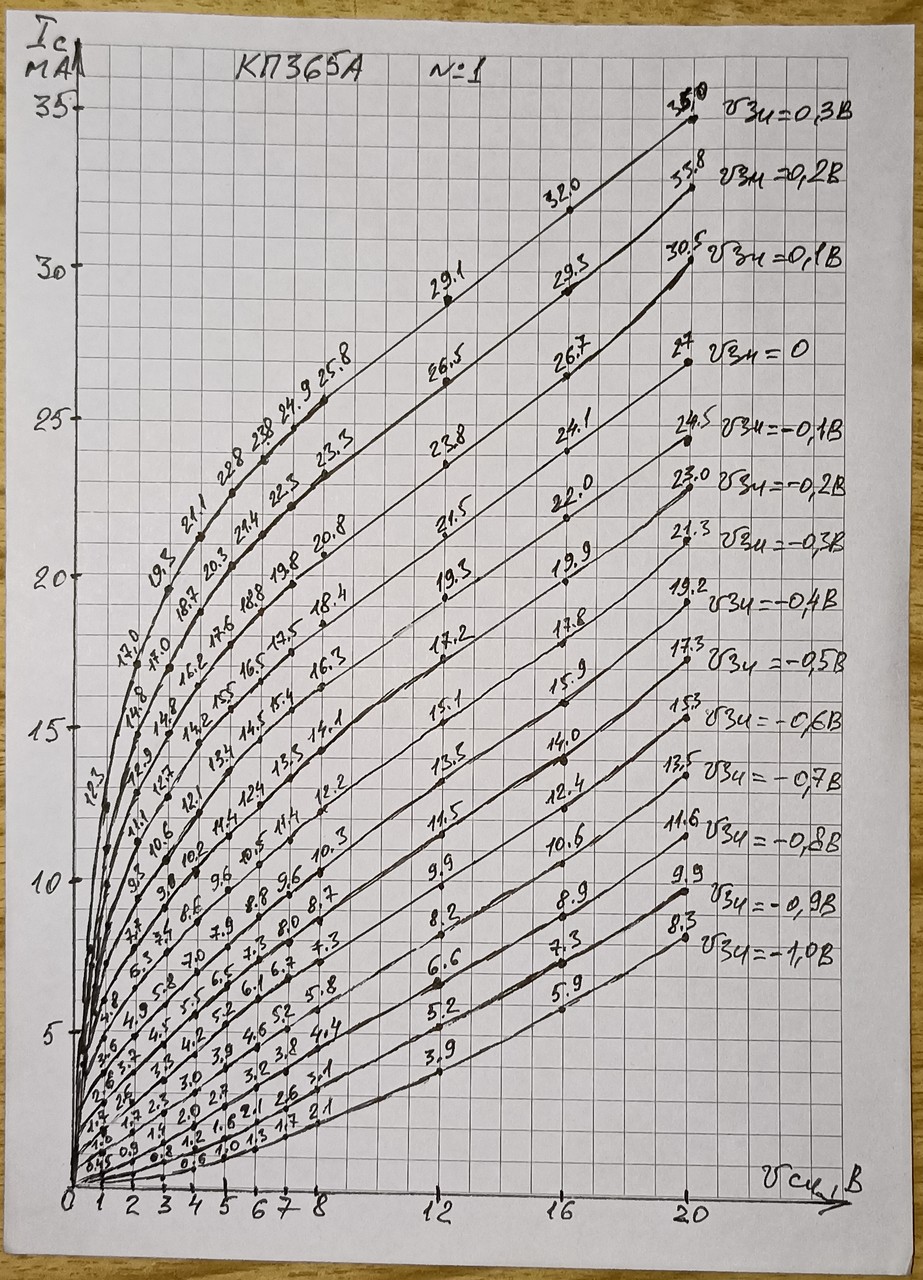 Ic
MA
КП365А №1
35
30
25
20
15
10
5
0 1 2 3 4 5 6 7 8 12 16 20
Uси, В
Uзи=0,3В
Uзи=0,2В
Uзи=0,1В
Uзи=0
Uзи=-0,1В
Uзи=-0,2В
Uзи=-0,3В
Uзи=-0,4В
Uзи=-0,5В
Uзи=-0,6В
Uзи=-0,7В
Uзи=-0,8В
Uзи=-0,9В
Uзи=-1,0В
12.3 17,0 19.3 21.1 22.8 23.8 24.9 25.8 29.1 32.0
14.8 17.0 18.7 20.3 21.4 22.3 23.3 26.5 29.3 33.8
12.9 14.8 16.2 17.6 18.8 19.8 20.8 23.8 26.7 30.5
11.1 12.7 14.2 15.5 16.5 17.5 18.4 21.5 24.1 27
9.3 10.6 12.1 13.4 14.5 15.4 16.3 19.3 22.0 24.5
7.7 9.0 10.2 11.4 12.4 13.3 14.1 17.2 19.9 23.0
4.8 6.3 7.4 8.6 9.6 10.5 11.4 12.2 15.1 17.8 21.3
3.6 4.9 5.8 7.0 7.9 8.8 9.6 10.3 13.3 15.9 19.2
2.6 3.7 4.5 5.5 6.5 7.3 8.0 8.7 11.5 14.0 17.3
1.7 2.6 3.3 4.2 5.2 6.1 6.7 7.3 9.9 12.4 15.3
1.0 1.7 2.3 3.0 3.9 4.6 5.2 5.8 8.2 10.6 13.5
0.45 0.9 1.4 2.0 2.7 3.2 3.8 4.4 6.6 8.9 11.6
0.8 1.2 1.6 2.1 2.6 3.1 5.2 7.3 9.9
0.6 1.0 1.3 1.7 2.1 3.9 5.9 8.3